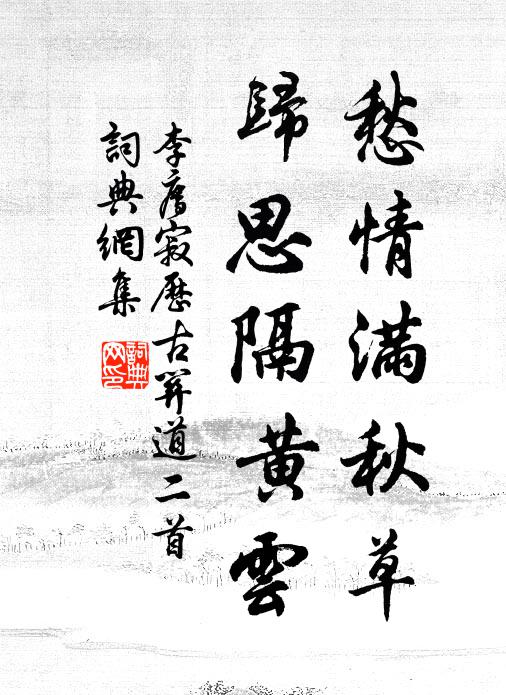 愁情滿秋草
歸思隔黃雲
李寂歷古道二首
詞典網集
詞典网印